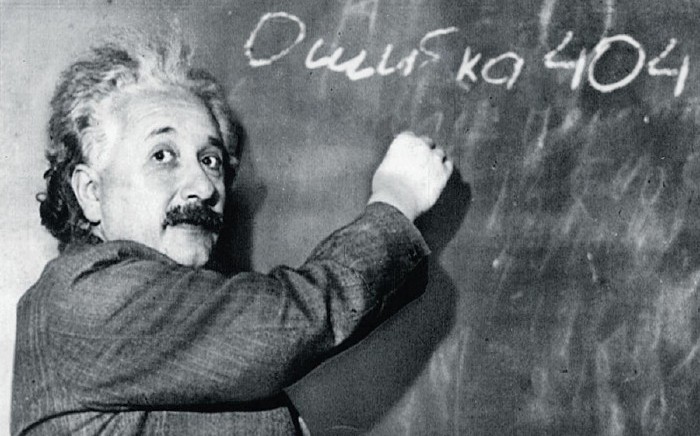 Ошибка 404